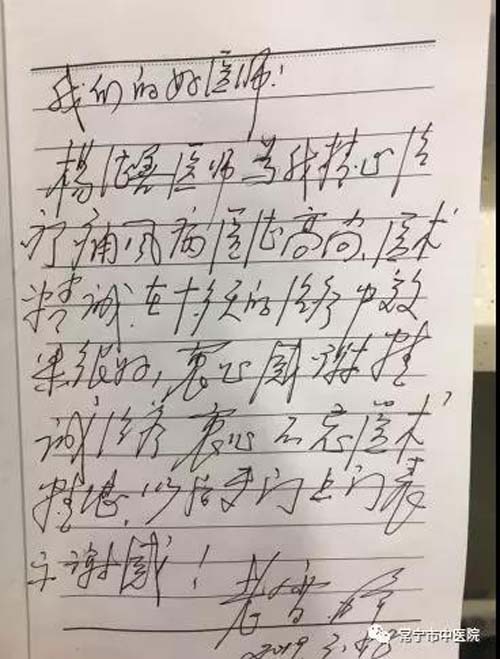 我们的好医师!
杨医师为我精心治
疗痛风病医德高尚、医术
精诚.在十多天的治疗中效
果很好,衷心感谢精
诚治疗衷心不忘医术
精堪.以后专门上门表
示谢感!
老
2019.
常宁市中医院